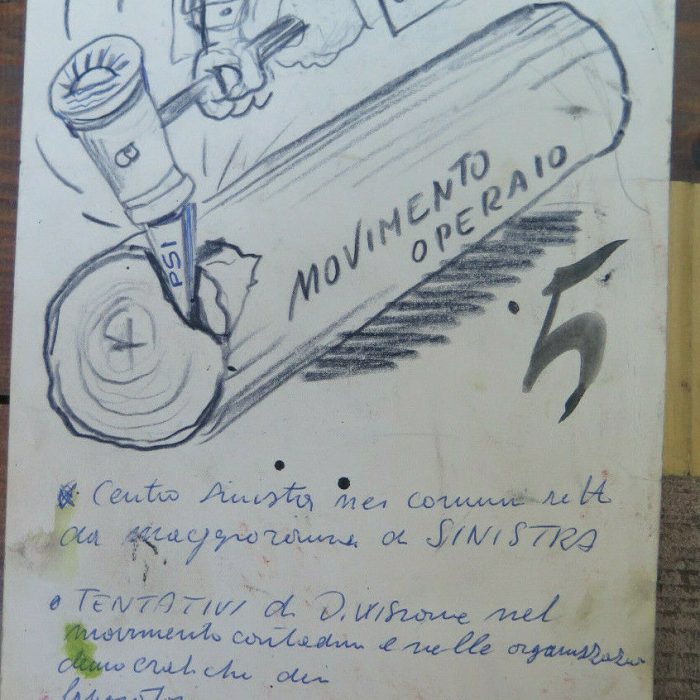 B
PSI
MOVIMENTO
OPERAIO
5
Centro Sinistra nei comuni retti
da maggioranza di SINISTRA
TENTATIVI di Divisione nel
movimento contadini e nelle organizzazioni
democratiche dei